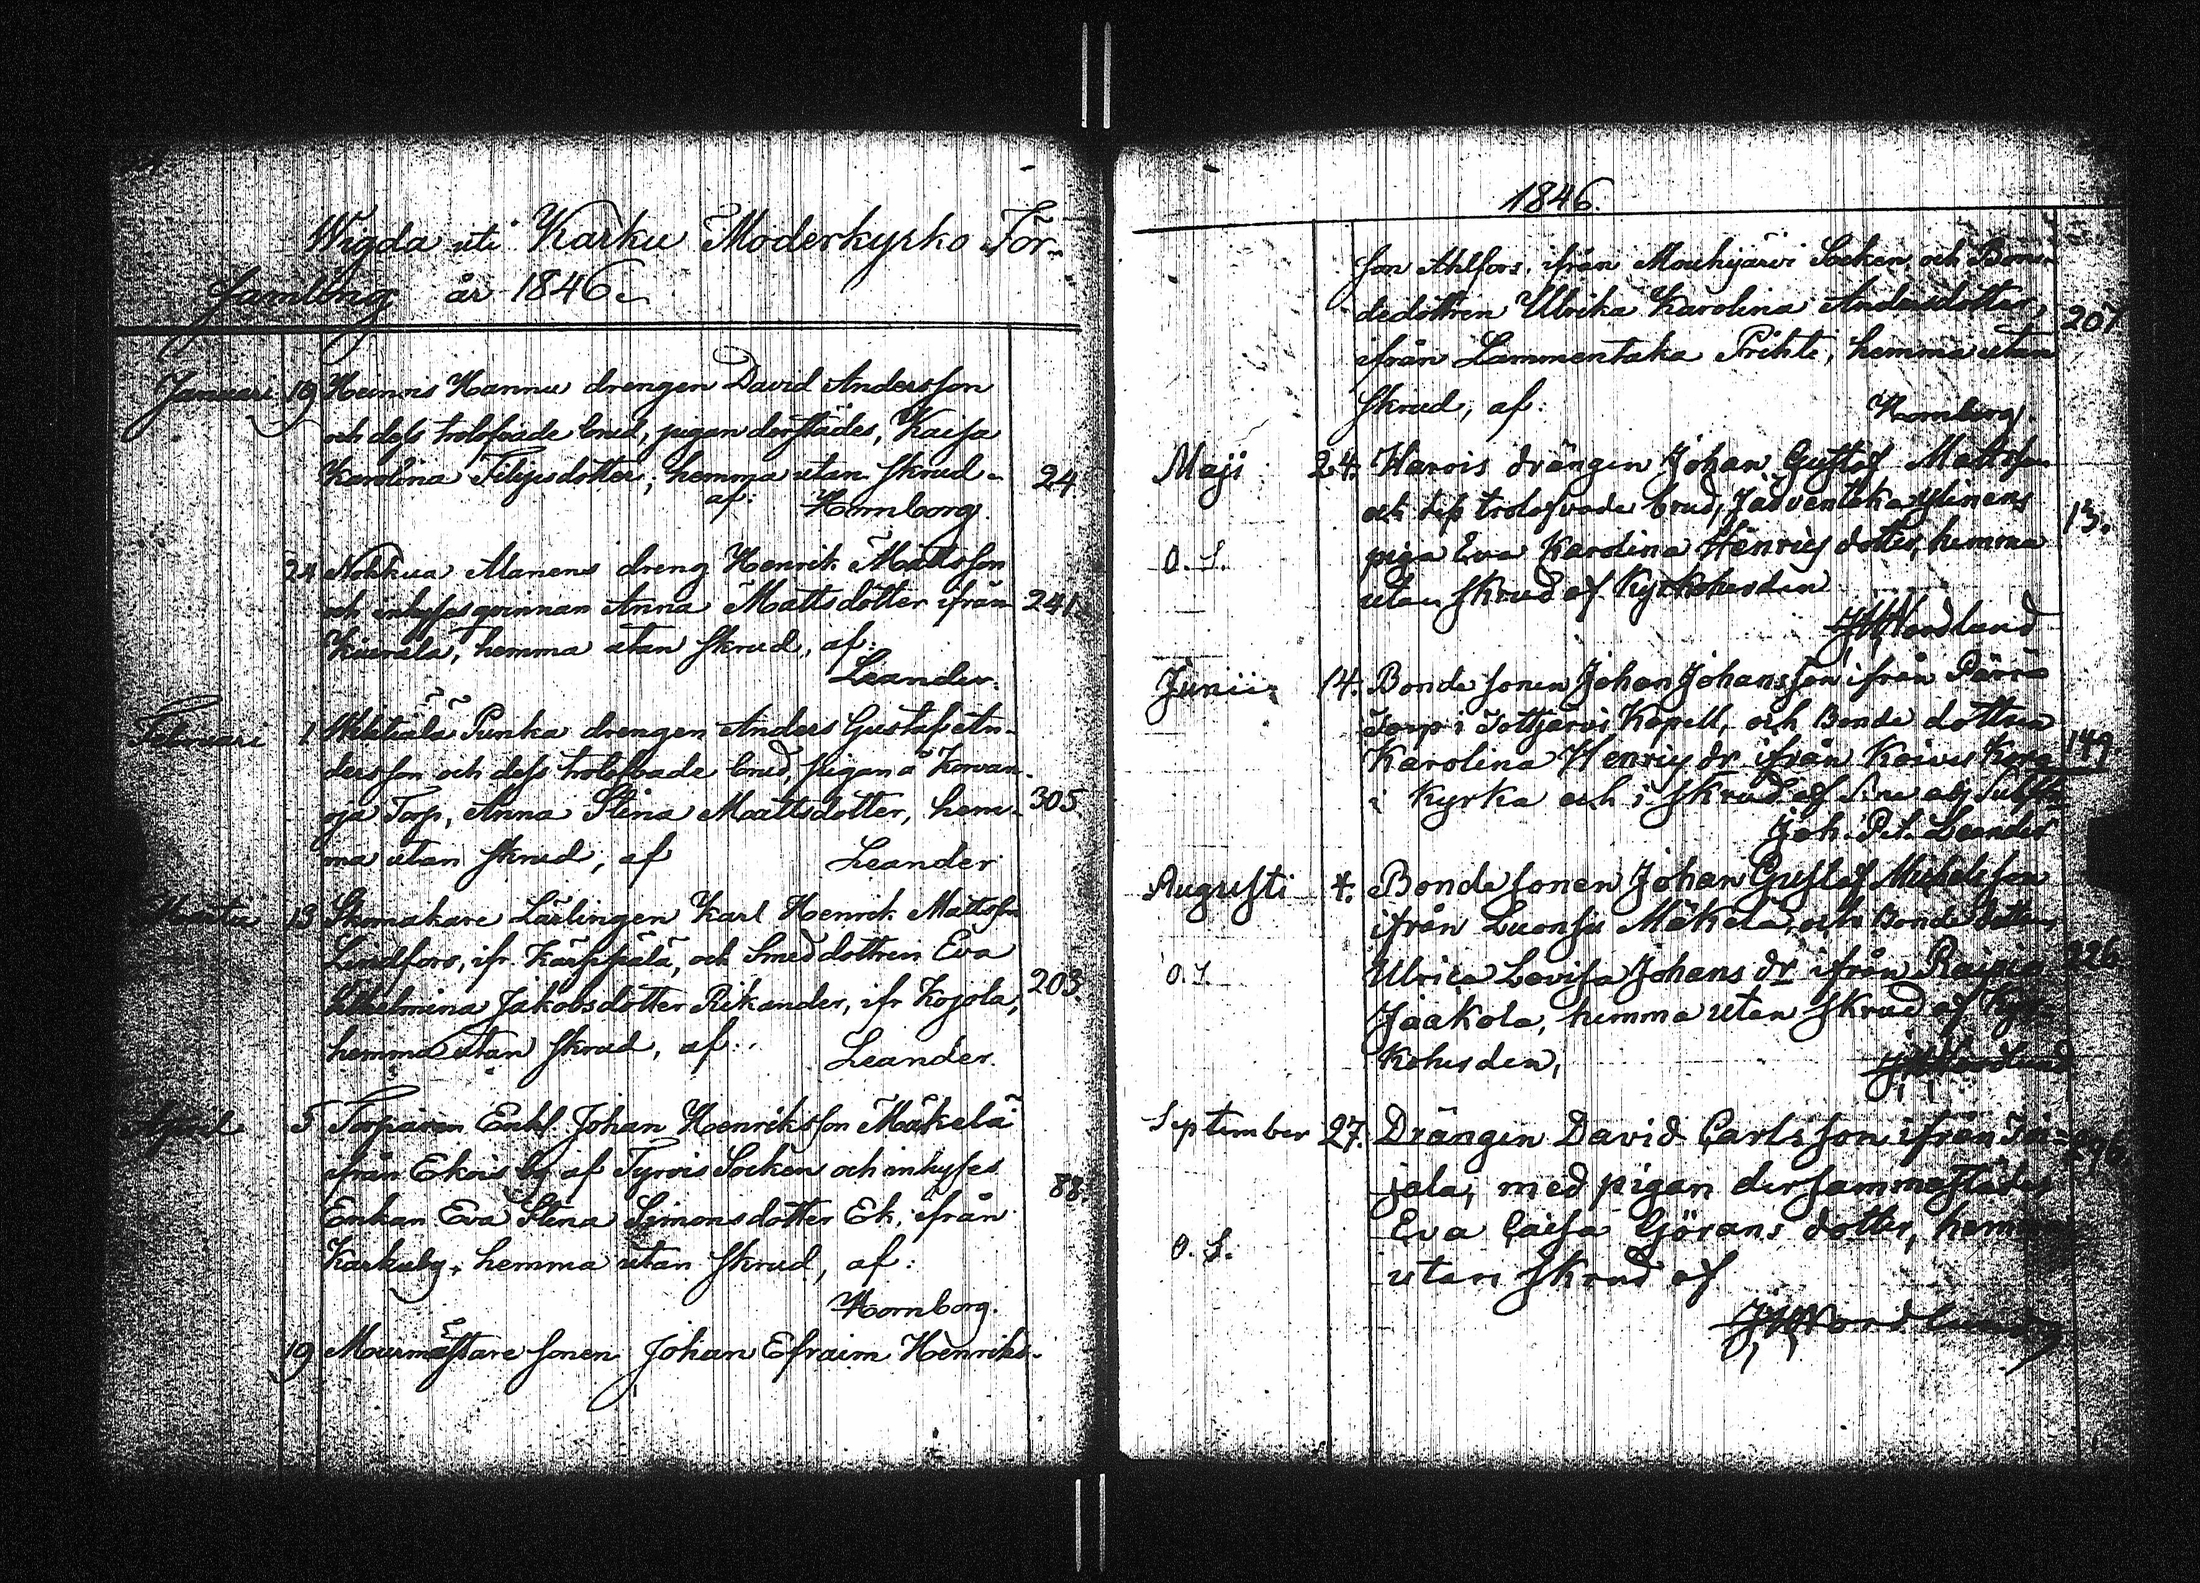 Wigda uti Karku Moderkyrko För-
samling år 1846.
Januari 19 Heinois Hannu drengen David Andersson
och dess trolofvade brud, pigan derstädes, Kaisa
Karolina Filipsdotter; hemma utan skrud 24
af: Hornborg
24 Nohkua Alanens dreng Henrik Mattsson
och inhyses qvinnan Anna Mattsdotter ifrån 241
Kiurala, hemma utan skrud, af:
Leander.
Februari 1 Punka drengen Anders Gustaf An-
dersson och dess trolofvade brud, pigan å Korvan-
oja Torp, Anna Stina Mattsdotter, hem- 305.
ma utan skrud, af Leander
Martii 13 Skomakare Lärlingen Karl Henrik Mattsson
Lindfors, ifr. Kärppälä, och Smeddottren Eva
Wilhelmina Jakobsdotter Rikander, ifr Kojola, 203.
hemma utan skrud, af: Leander.
April 5 Torparen Enkl. Johan Henriksson Mäkelä
ifrån Ekois by af Tyrvis Socken och inhyses
Enkan Eva Stina Simonsdotter Ek, ifrån 88.
Karkuby, hemma utan skrud, af:
Hornborg.
19 Murmästare sonen Johan Efraim Henriks-
1846.
son Ahlfors, ifrån Mouhijärvi Socken och Bon-
dedottren Ulrika Karolina Andersdotter, 207
ifrån Lammentaka Prihti, hemma utan
skrud, af: Hornborg.
Maji 24. Warois drängen Johan Gustaf Mattsson
och dess trolofvade brud, Ylinens 13.
O. S. piga Eva Karolina Henrics dotter, hemma
utan skrud af Kyrkoherden
JW Nordlund
Junii 14. Bonde sonen Johan Johansson ifrån
Torp i Kapell, och Bonde dottren
Karolina Henrics dr ifrån 149.
i Kyrka och i skrud af
Joh. Pet. Leander
Augusti 4. Bonde sonen Johan Gustaf Michelsson
ifrån Luonsu Mäkelä, och Bonde dottren
O. S. Ulrica Lovisa Johans dr ifrån Raipio 226
Jaakola, hemma utan skrud af Kyr-
koherden, JW Nordlund
September 27. Drängen David Carlsson ifrån
jala, med pigan dersammastädes
Eva Caisa Görans dotter, hemma
O. S. utan skrud af
JW Nordlund